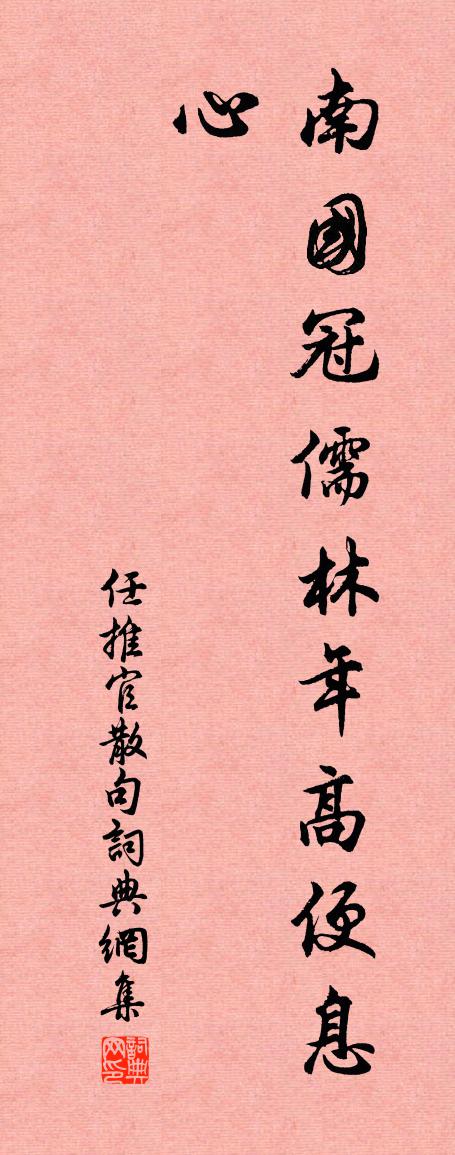 南國冠儒林年高便息
心
任推官散句詞典網集
詞典网印